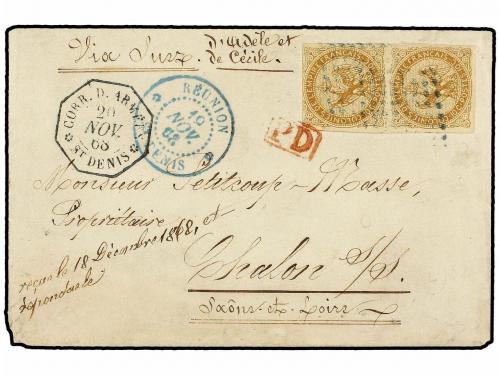 Via Suez
d'Adèle et
de Cécile.
CORR. D. ARMÉES
20
NOV.
68
ST DENIS
REUNION
19
NOV
68
ST DENIS
PD
Monsieur Petitcoup-Masse,
Propriétaire
reçue le 18 Décembre 1868, et
répondue le
Chalon s/s.
Saône-et-Loire